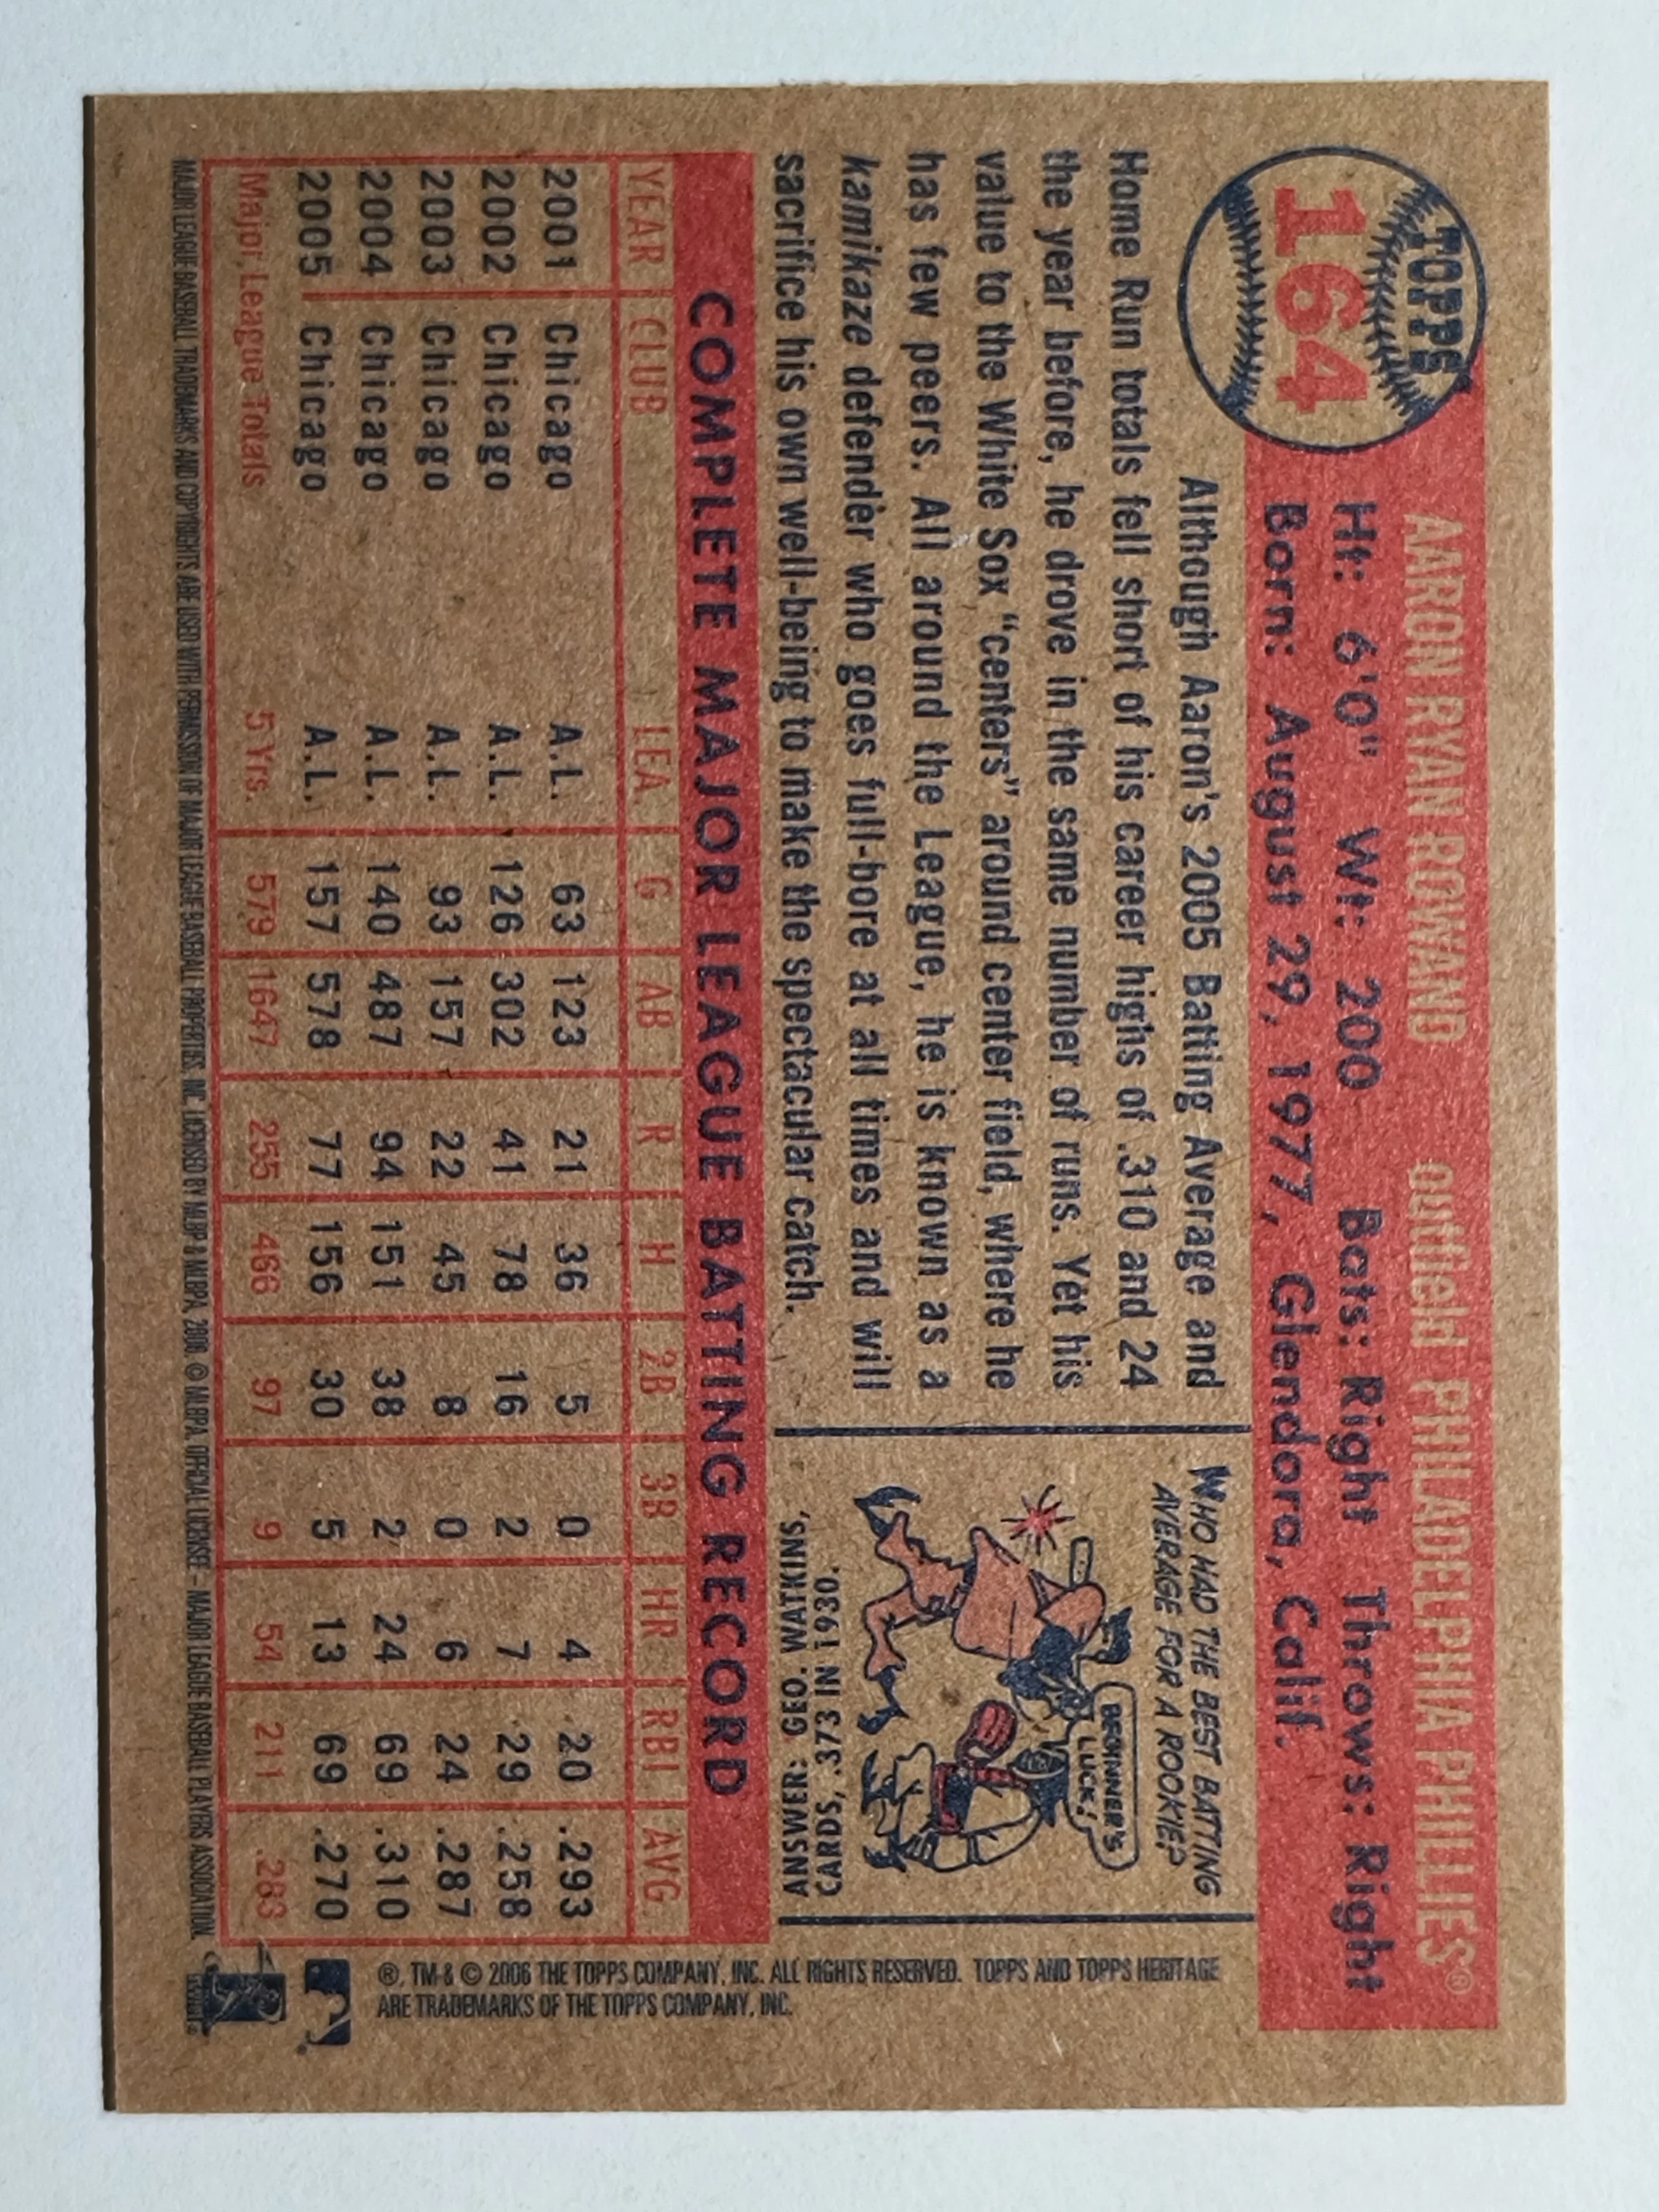 TOPPS
164
AARON RYAN ROWAND outfield PHILADELPHIA PHILLIES®
Ht: 6'0" Wt: 200 Bats: Right Throws: Right
Born: August 29, 1977, Glendora, Calif.
Although Aaron's 2005 Batting Average and
Home Run totals fell short of his career highs of .310 and 24
the year before, he drove in the same number of runs. Yet his
value to the White Sox "centers" around center field, where he
has few peers. All around the League, he is known as a
kamikaze defender who goes full-bore at all times and will
sacrifice his own well-being to make the spectacular catch.
WHO HAD THE BEST BATTING
AVERAGE FOR A ROOKIE?
BEGINNER'S
LUCK!
ANSWER: GEO. WATKINS,
CARDS, .373 IN 1930.
COMPLETE MAJOR LEAGUE BATTING RECORD
YEAR CLUB LEA. G AB R H 2B 3B HR RBI AVG.
2001 Chicago A.L. 63 123 21 36 5 0 4 20 .293
2002 Chicago A.L. 126 302 41 78 16 2 7 29 .258
2003 Chicago A.L. 93 157 22 45 8 0 6 24 .287
2004 Chicago A.L. 140 487 94 151 38 2 24 69 .310
2005 Chicago A.L. 157 578 77 156 30 5 13 69 .270
Major League Totals 5 Yrs. 579 1647 255 466 97 9 54 211 .283
MAJOR LEAGUE BASEBALL TRADEMARKS AND COPYRIGHTS ARE USED WITH PERMISSION OF MAJOR LEAGUE BASEBALL PROPERTIES, INC. LICENSED BY MLBP & MLBPA, 2006. © MLBPA, OFFICIAL LICENSEE – MAJOR LEAGUE BASEBALL PLAYERS ASSOCIATION.
®, TM & © 2006 THE TOPPS COMPANY, INC. ALL RIGHTS RESERVED. TOPPS AND TOPPS HERITAGE
ARE TRADEMARKS OF THE TOPPS COMPANY, INC.